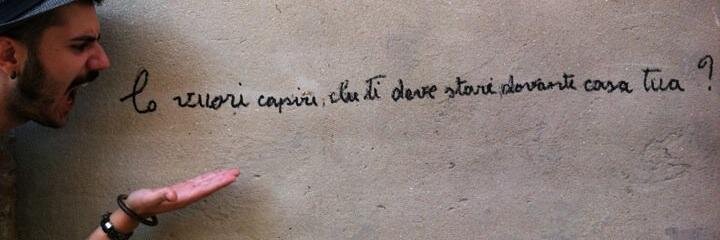 Lo vuoi capire, che ti deve stare davanti casa tua ?